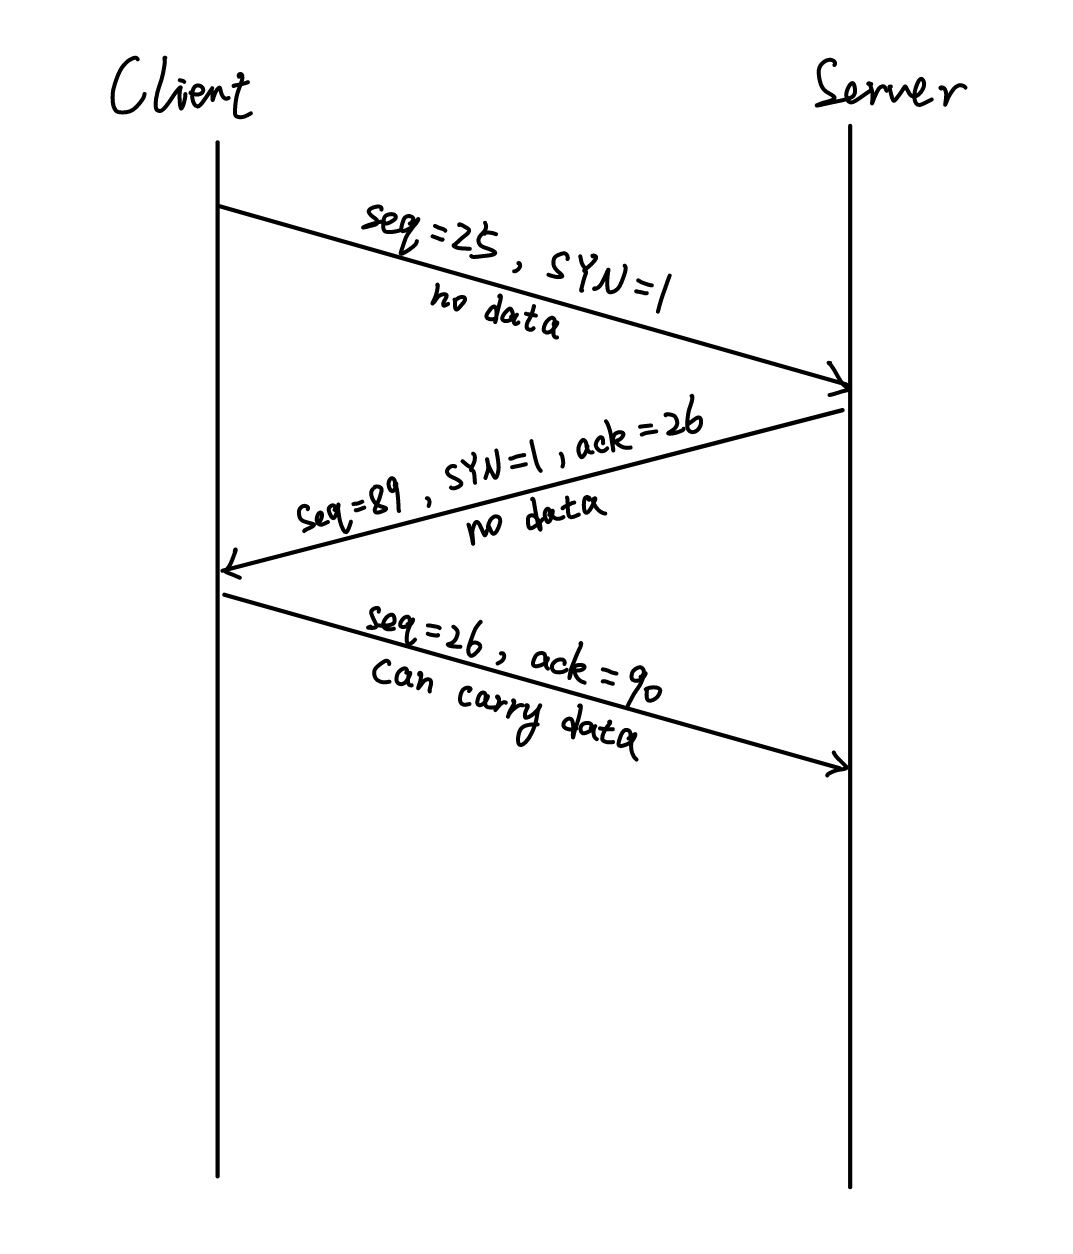 Client
Server
seq=25, SYN=1
no data
seq=89, SYN=1, ack=26
no data
seq=26, ack=90
can carry data